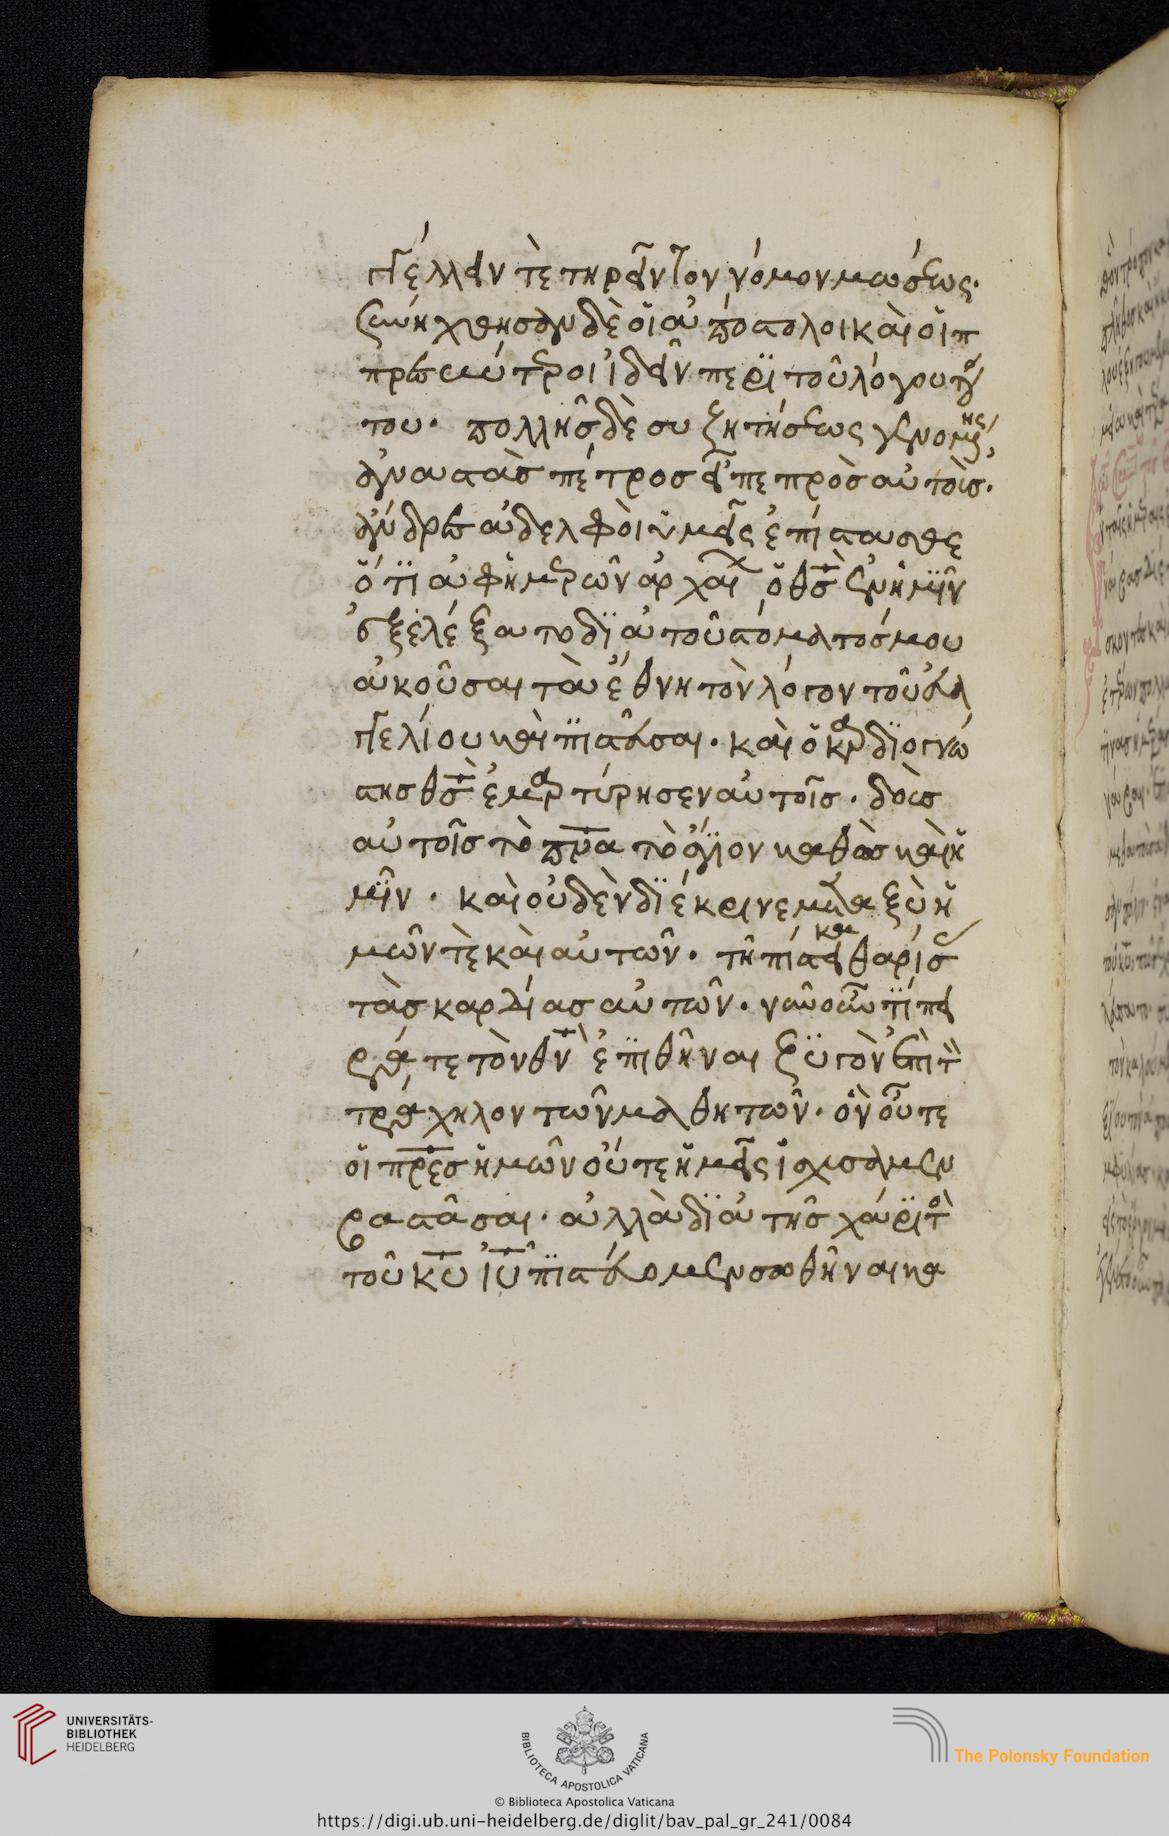 γγέλλειν τὲ τηρεῖν τὸν νόμον μωσέως.
συνήχθησαν δὲ οἱ ἀπόστολοι καὶ οἱ π
πρεσβύτεροι ἰδεῖν περὶ τοῦ λόγου τού
του. πολλῆς δὲ συζητήσεως γενομένης,
ἀναστὰς πέτρος εἶπε πρὸς αὐτοὺς.
ἄνδρες ἀδελφοὶ ὑμεῖς ἐπίστασθε
ὅτι ἀφ ἡμερῶν ἀρχαίων ὁ θς ἐν ἡμῖν
ἐξελέξατο διὰ τοῦ στόματός μου
ἀκοῦσαι τὰ ἔθνη τὸν λόγον τοῦ εὐα
γγελίου καὶ πιστεῦσαι. καὶ ὁ καρδιογνώ
στης θς ἐμαρτύρησεν αὐτοῖς. δοὺς
αὐτοῖς τὸ πνα τὸ ἅγιον καθὼς καὶ ἡ
μῖν. καὶ οὐδὲν διέκρινε μεταξὺ ἡ
μῶν τὲ καὶ αὐτῶν. τῇ πίστει καθαρίσας
τὰς καρδίας αὐτῶν. νῦν οὖν τί πει
ράζετε τὸν θν ἐπιθῆναι ζυγὸν ἐπὶ τὸν
τράχηλον τῶν μαθητῶν. ὃν οὔτε
οἱ πρες ἡμῶν οὔτε ἡμεῖς ἰσχύσαμεν
βαστᾶσαι. ἀλλὰ διὰ τῆς χάριτος
τοῦ κυ ιυ πιστεύομεν σωθῆναι κα
UNIVERSITÄTS-
BIBLIOTHEK
HEIDELBERG
BIBLIOTECA APOSTOLICA VATICANA
The Polonsky Foundation
© Biblioteca Apostolica Vaticana
https://digi.ub.uni-heidelberg.de/diglit/bav_pal_gr_241/0084